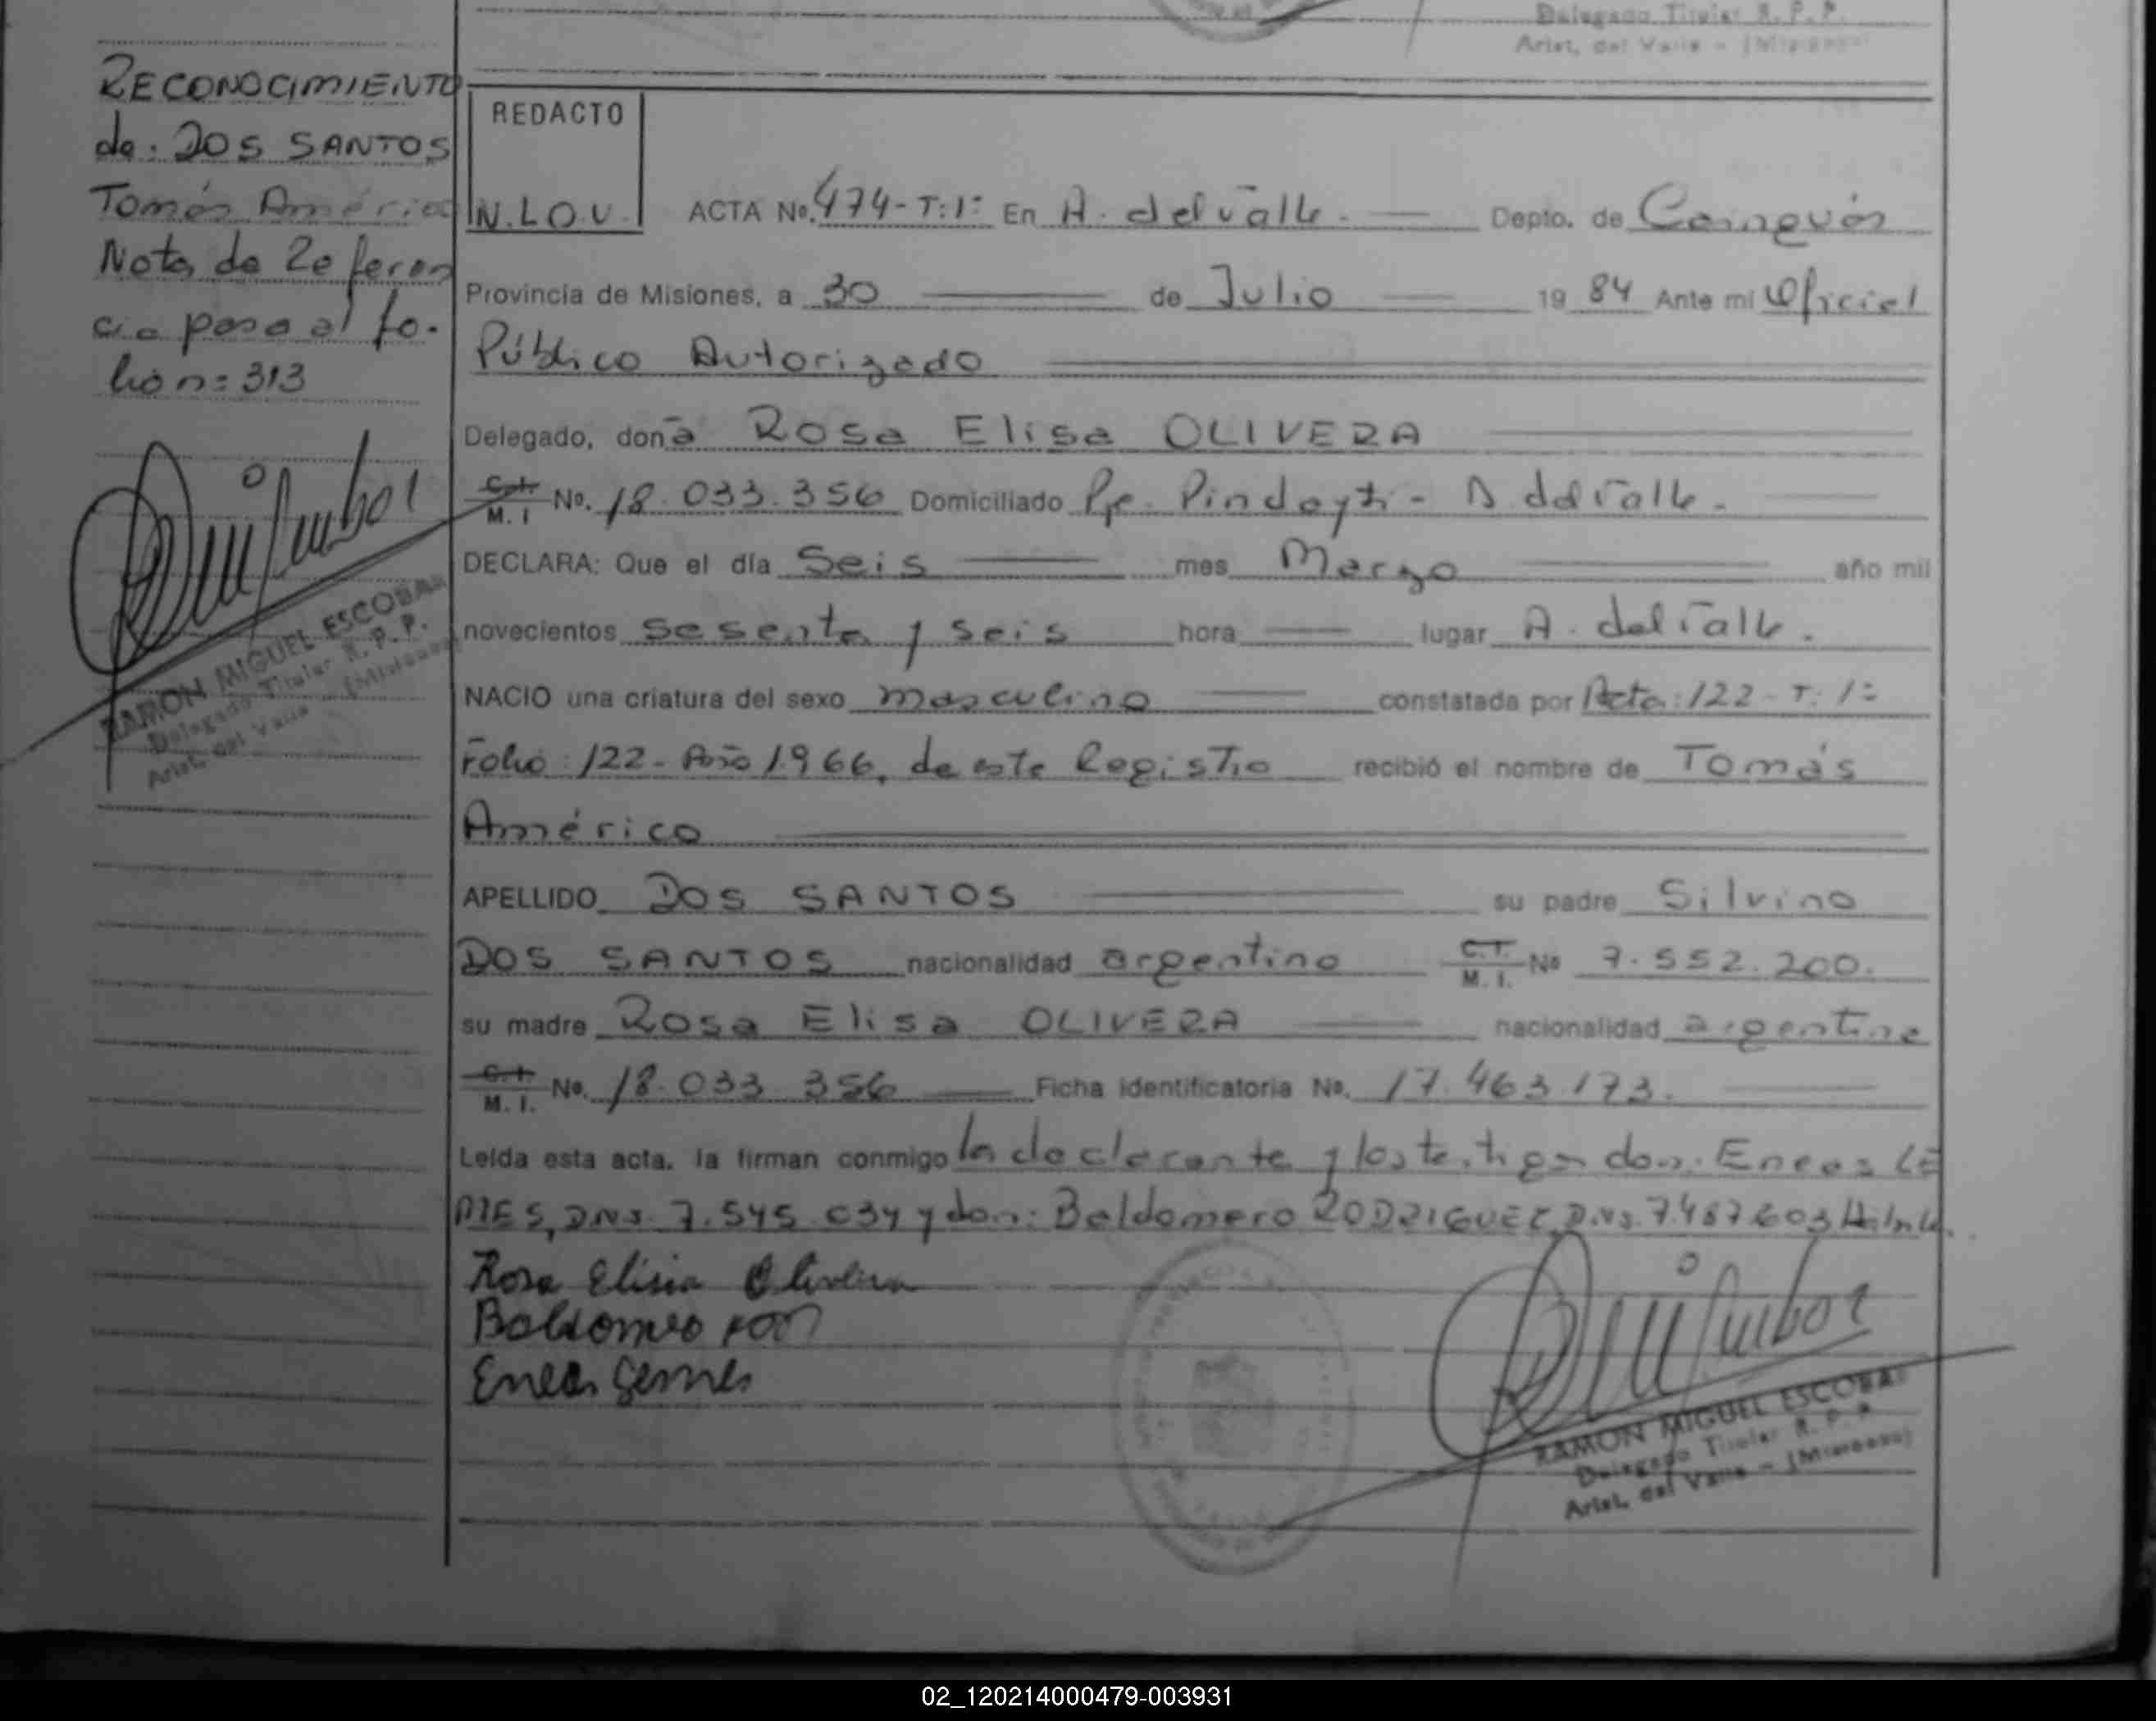 Delegado Titular R. P. P.
Arist. del Valle - (Misiones)
RECONOCIMIENTO
de: DOS SANTOS
Tomás Américo
Nota de Referen
cia pasa al fo-
lio n: 313
RAMON MIGUEL ESCOBAR
Delegado Titular R. P. P.
Arist. del Valle (Misiones)
REDACTO
N.L.O.V.
ACTA No. 474-T:1: En A. del Valle. Depto. de Cainguás
Provincia de Misiones, a 30 de Julio 19 84 Ante mi Oficial
Público Autorizado
Delegado, doña Rosa Elisa OLIVERA
C.I. M. I No. 18.033.356 Domiciliado Pje. Pindayti - A. del Valle.
DECLARA: Que el día Seis mes Marzo año mil
novecientos sesenta y seis hora lugar A. del Valle.
NACIO una criatura del sexo masculino constatada por Acta: 122-T: 1:
Folio: 122- Año 1966, de este Registro recibió el nombre de Tomás
Américo
APELLIDO DOS SANTOS su padre Silvino
DOS SANTOS nacionalidad argentino C.I. M. I. No 7.552.200.
su madre Rosa Elisa OLIVERA nacionalidad argentina
C.I. M. I. No. 18.033.356 Ficha identificatoria No. 17.463.173.
Leída esta acta, la firman conmigo la declarante y los testigos don: Eneas
D.N.I. 7.545.034 y don: Baldomero RODRIGUEZ, D.N.I. 7.487.603
Rosa Elisa Olivera
Baldomero
Eneas
RAMON MIGUEL ESCOBAR
Delegado Titular R. P. P.
Arist. del Valle - (Misiones)
02_120214000479-003931